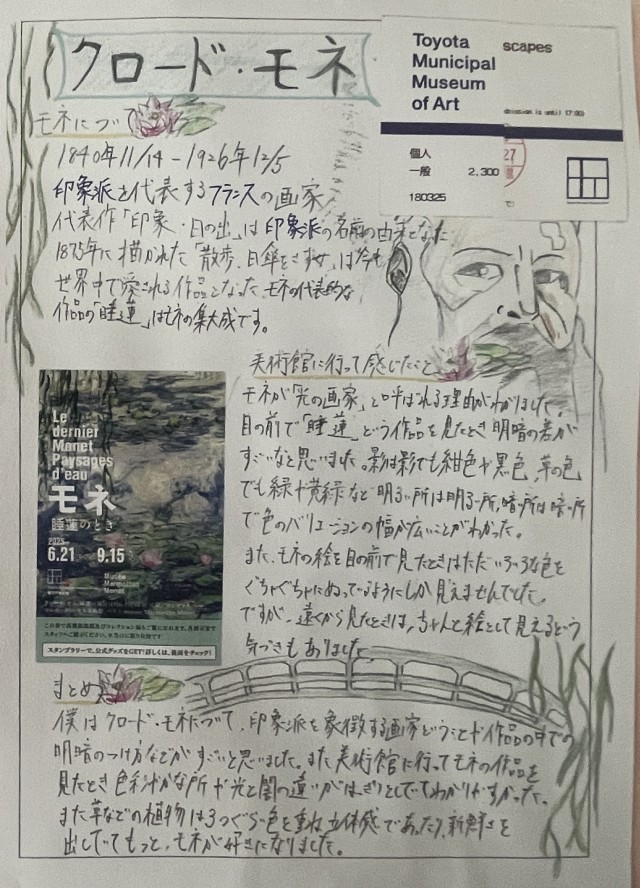 クロード・モネ
Toyota
Municipal
Museum
of Art
scapes
dmission is until 17:00)
個人
一般 2,300
27
180325
モネについて
1840年11/14-1926年12/5
印象派を代表するフランスの画家
代表作「印象・日の出」は印象派の名前の由来となった
1875年に描かれた「散歩、日傘をさす女」は今も
世界中で愛される作品となった。モネの代表的な
作品の「睡蓮」はモネの集大成です。
美術館に行って感じたこと
モネが「光の画家」と呼ばれる理由がわかりました。
目の前で「睡蓮」という作品を見たとき明暗の差が
すごいなと思いました。影は影でも紺色や黒色、草の色
でも緑や黄緑など明るい所は明るい所、暗い所は暗い所
で色のバリエーションの幅が広いことがわかった。
また、モネの絵を目の前で見たときはただいろいろな色を
ぐちゃぐちゃにぬっているようにしか見えませんでした。
ですが、遠くから見たときは、ちゃんと絵として見えるという
気づきもありました
Le
dernier
Monet
Paysages
d'eau
モネ
睡蓮のとき
2025
6.21 9.15
Musée
Marmottan
Monet
スタンプラリーで、公式グッズをGET!詳しくは、裏面をチェック!
まとめ
僕はクロード・モネについて、印象派を象徴する画家ということや作品の中での
明暗のつけ方などがすごいと思いました。また美術館に行ってモネの作品を
見たとき色彩豊かな所や光と闇の違いがはっきりとしていてわかりやすかった。
また草などの植物は3つぐらい色を重ね立体感であったり、新鮮さを
出していてもっと、モネが好きになりました。